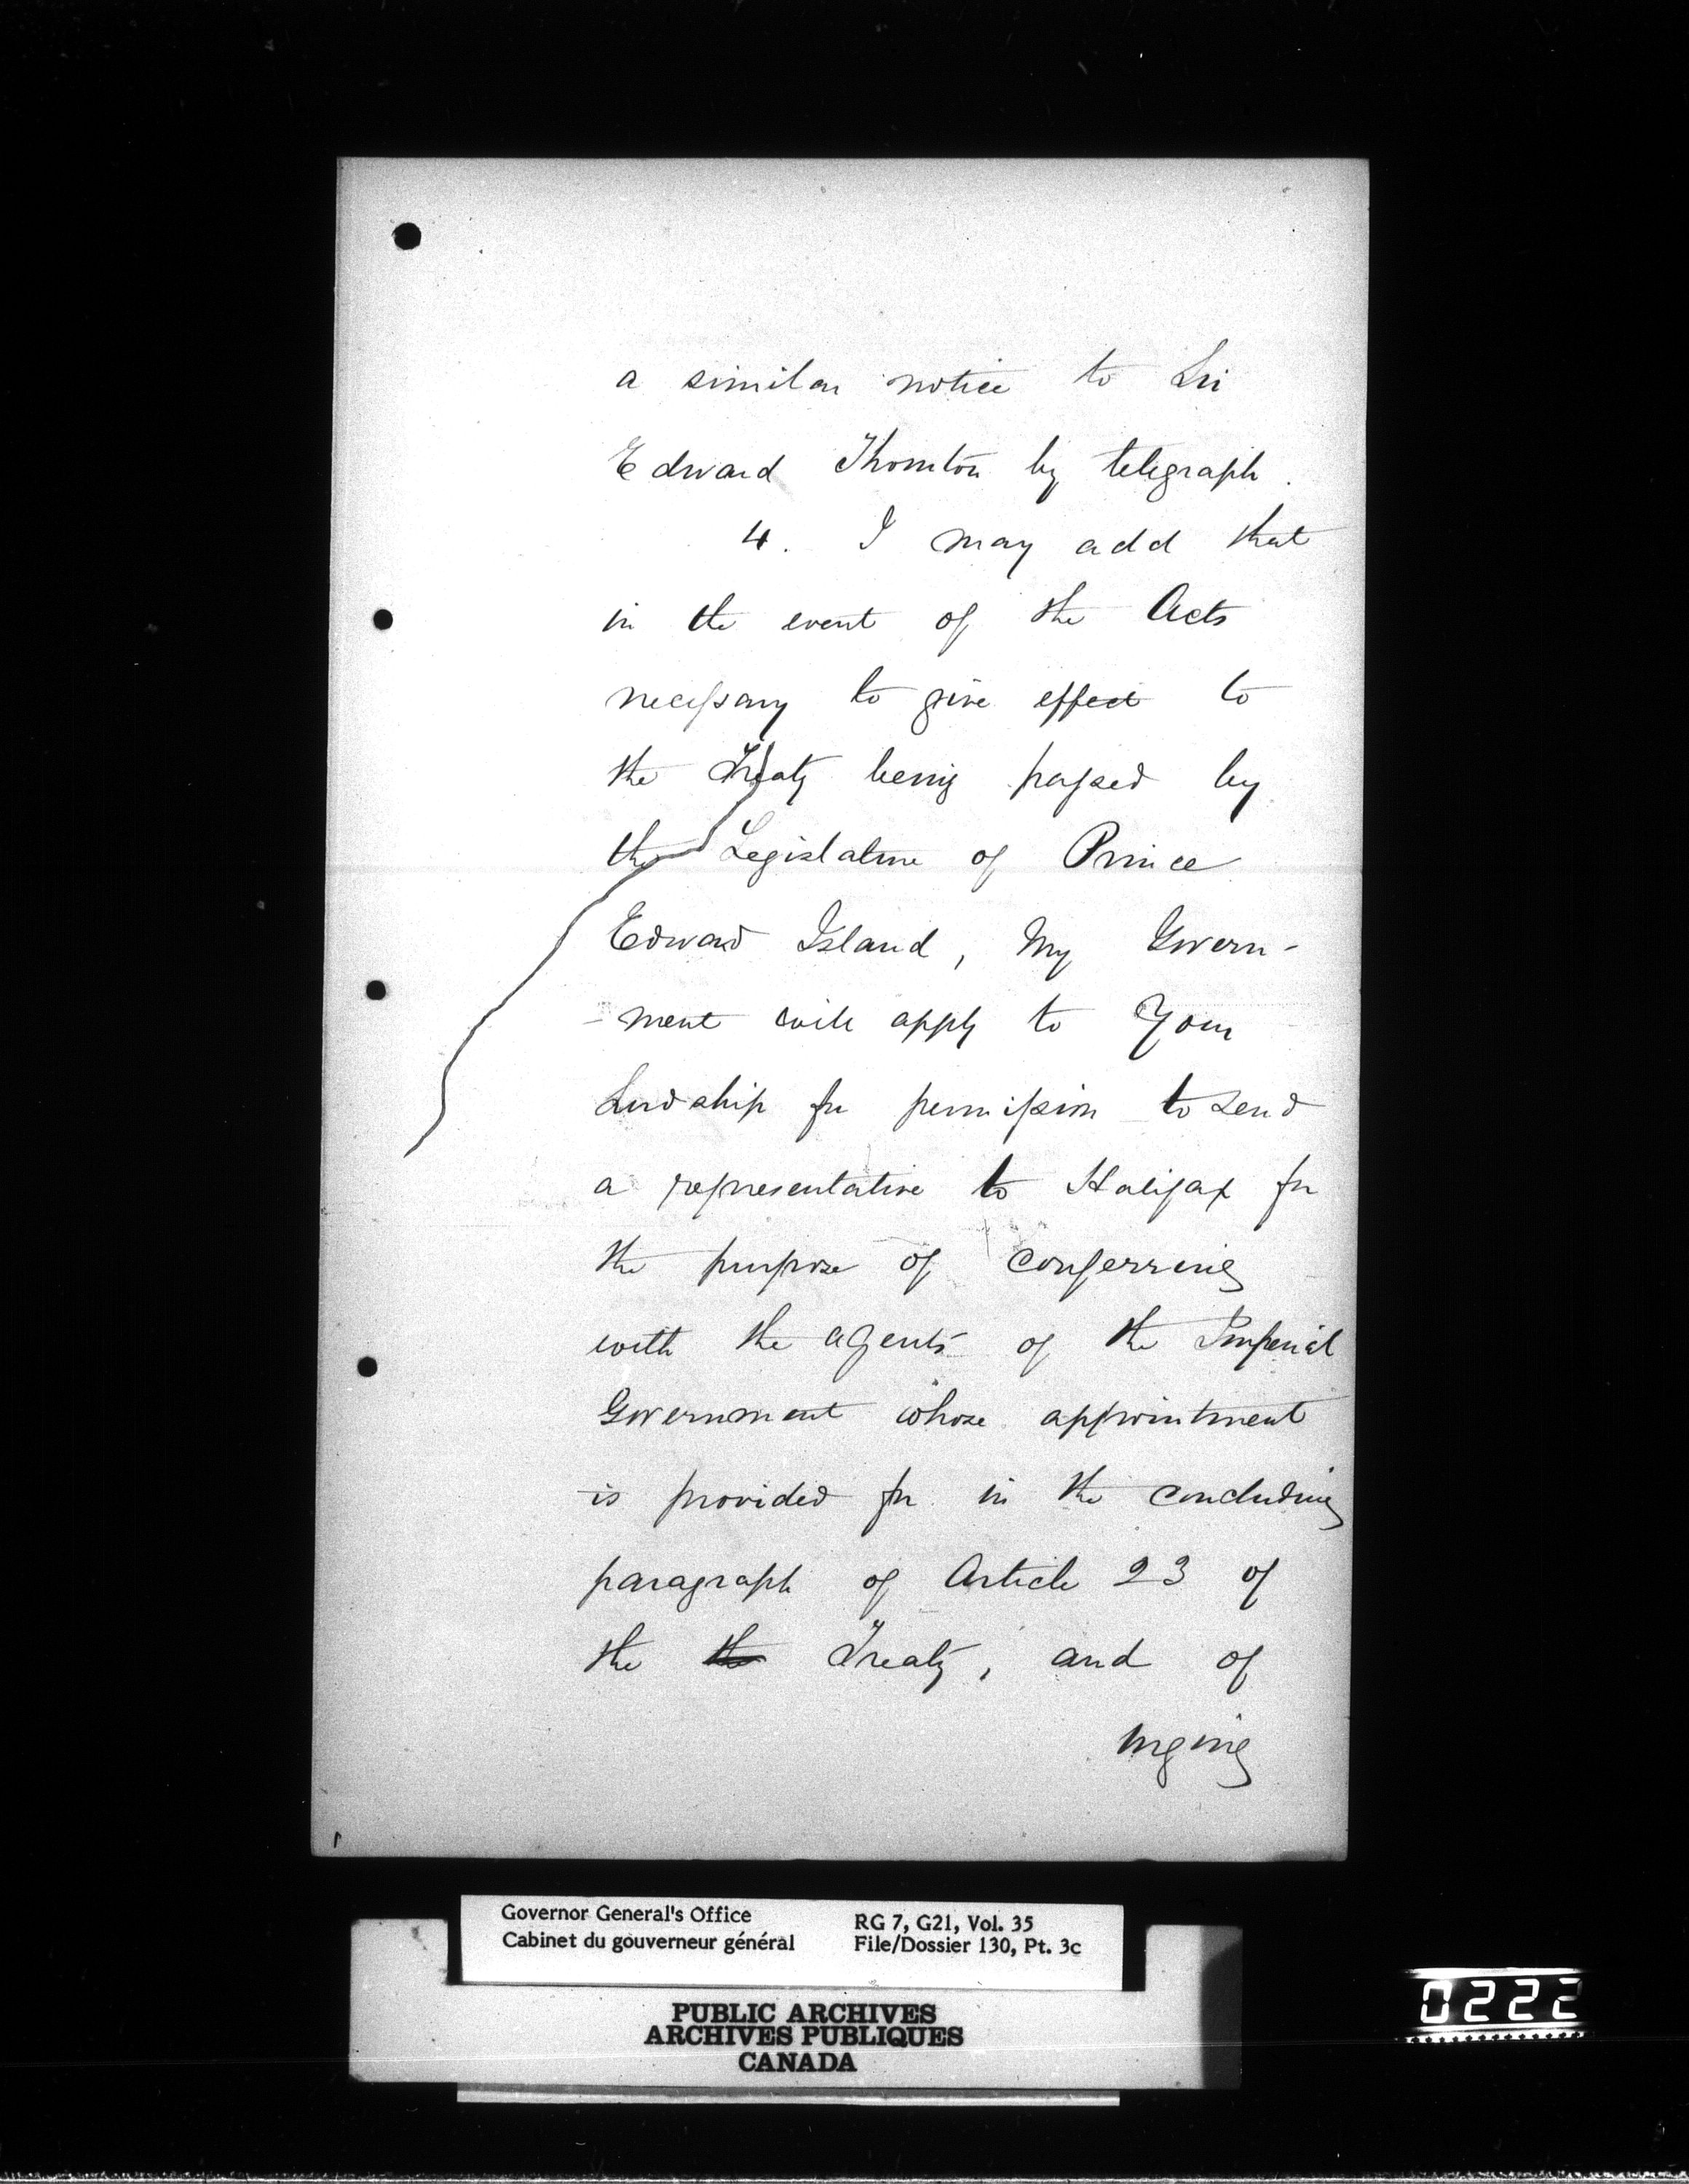 a similar notice to Sir
Edward Thornton by telegraph.
4. I may add that
in the event of the Acts
necessary to give effect to
the Treaty being passed by
the Legislature of Prince
Edward Island, My Govern-
-ment will apply to Your
Lordship for permission to send
a representative to Halifax for
the purpose of conferring
with the agents of the Imperial
Government whose appointment
is provided for in the concluding
paragraph of Article 23 of
the the Treaty, and of
urging
Governor General's Office
Cabinet du gouverneur général
RG 7, G21, Vol. 35
File/Dossier 130, Pt. 3c
PUBLIC ARCHIVES
ARCHIVES PUBLIQUES
CANADA
0222